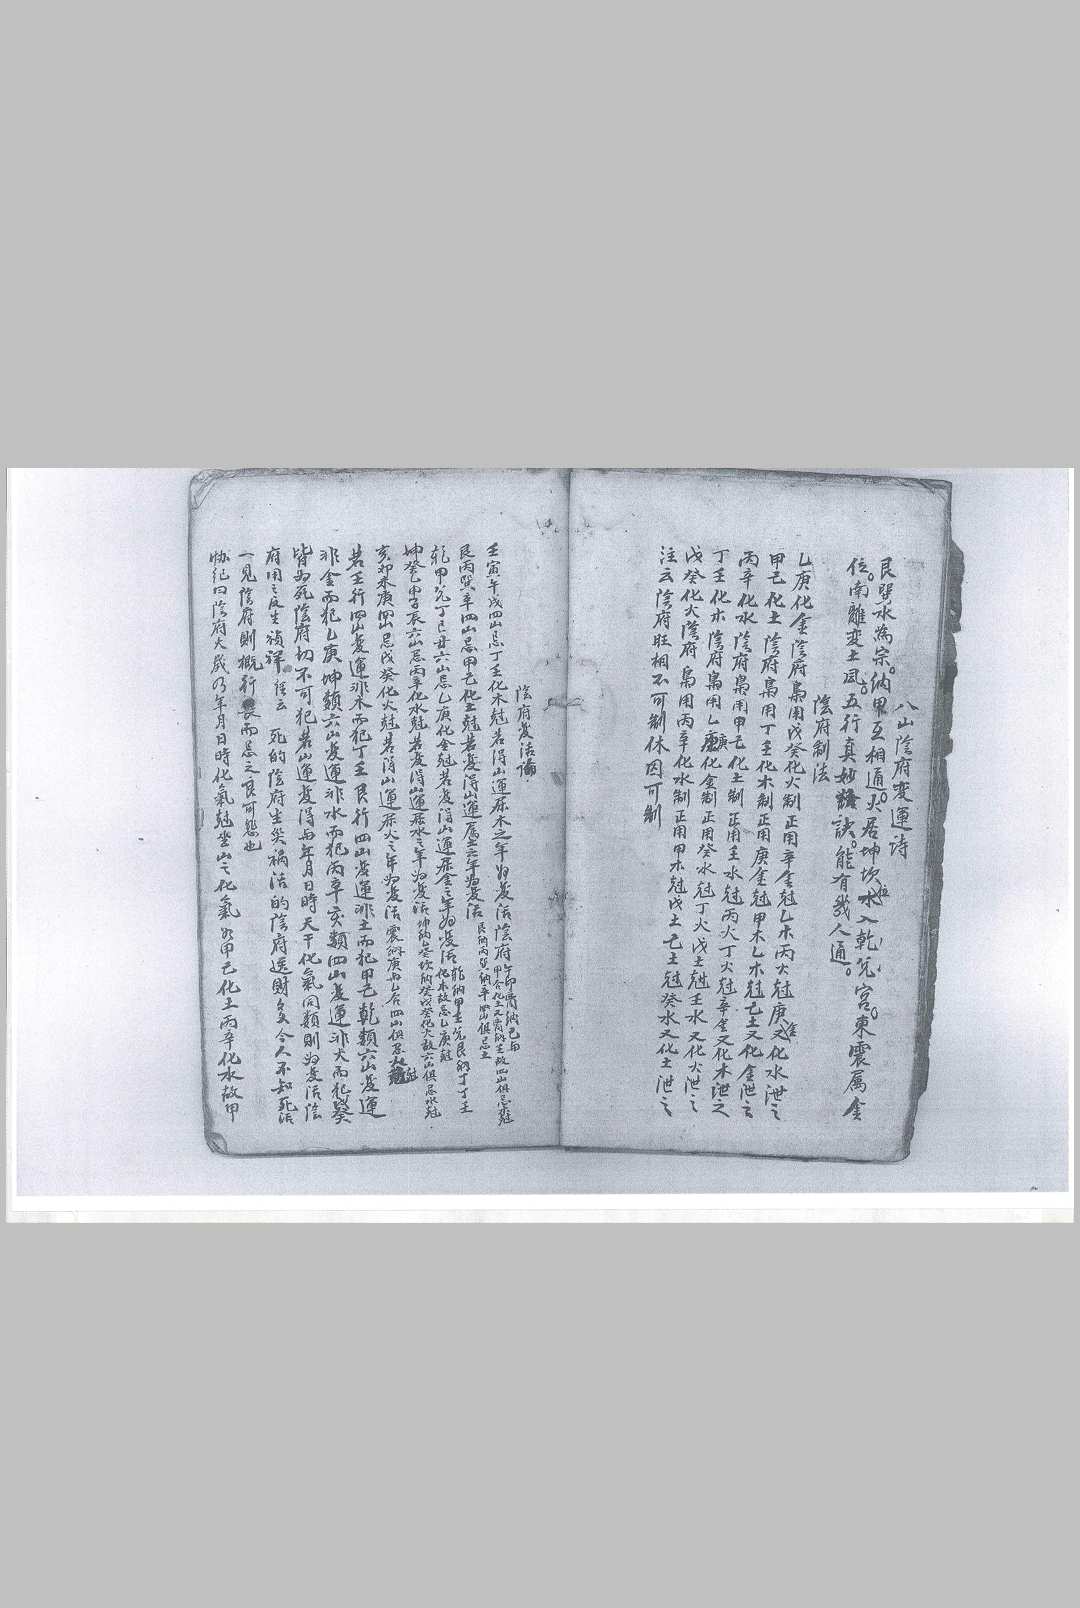 八山陰府変運诗
艮巽水為宗。納甲互相通。火居坤坎位水入乾兌宮。東震属金
位。南離変土囬。五行真妙訣。能有幾人通。
陰府制法
乙庚化金陰府梟用戊癸化火制正用辛金尅乙木丙火尅庚又化水泄之
甲己化土陰府梟用丁壬化木制正用庚金尅甲木乙木尅己土又化金泄之
丙辛化水陰府梟用甲己化土制正用壬水尅丙火丁火尅辛金又化木泄之
丁壬化木陰府梟用乙庚化金制正用癸水尅丁火戊土尅壬水又化火泄之
戊癸化火陰府梟用丙辛化水制正用甲木尅戊土己土尅癸水又化土泄之
注云陰府旺相不可制休囚可制
陰府变活論
壬寅午戌四山忌丁壬化木尅若得山運屬木之年为变活陰府
艮丙巽辛四山忌甲己化土尅若变得山運属土之年为变活艮納丙巽納辛四山俱忌土
乾甲兌丁巳丑六山忌乙庚化金尅若变得山運屬金之年为变活乾納甲壬兌納丁丁壬化木故忌乙庚尅
坤癸乙申子辰六山忌丙辛化水尅若变得山運屬水之年为变活坤納乙癸坎納癸戊癸化火故六山俱忌水尅
亥卯未庚四山忌戊癸化火尅若得山運屬火之年为变活震納庚与乙合四山俱忌火尅
若壬行四山变運非木而犯丁壬艮行四山变運非土而犯甲己乾類六山变運
非金而犯乙庚坤類六山变運非水而犯丙辛亥類四山变運非火而犯戊癸
皆为死陰府切不可犯若山運变得与年月日時天干化氣同類則为变活陰
府用之反生禎祥經云死的陰府生災禍活的陰府送財多今人不知死活
一見陰府則概行畏而忌之良可慾也
协纪曰陰府大歲乃年月日時化氣尅坐山之化氣如甲己化土丙辛化水故甲